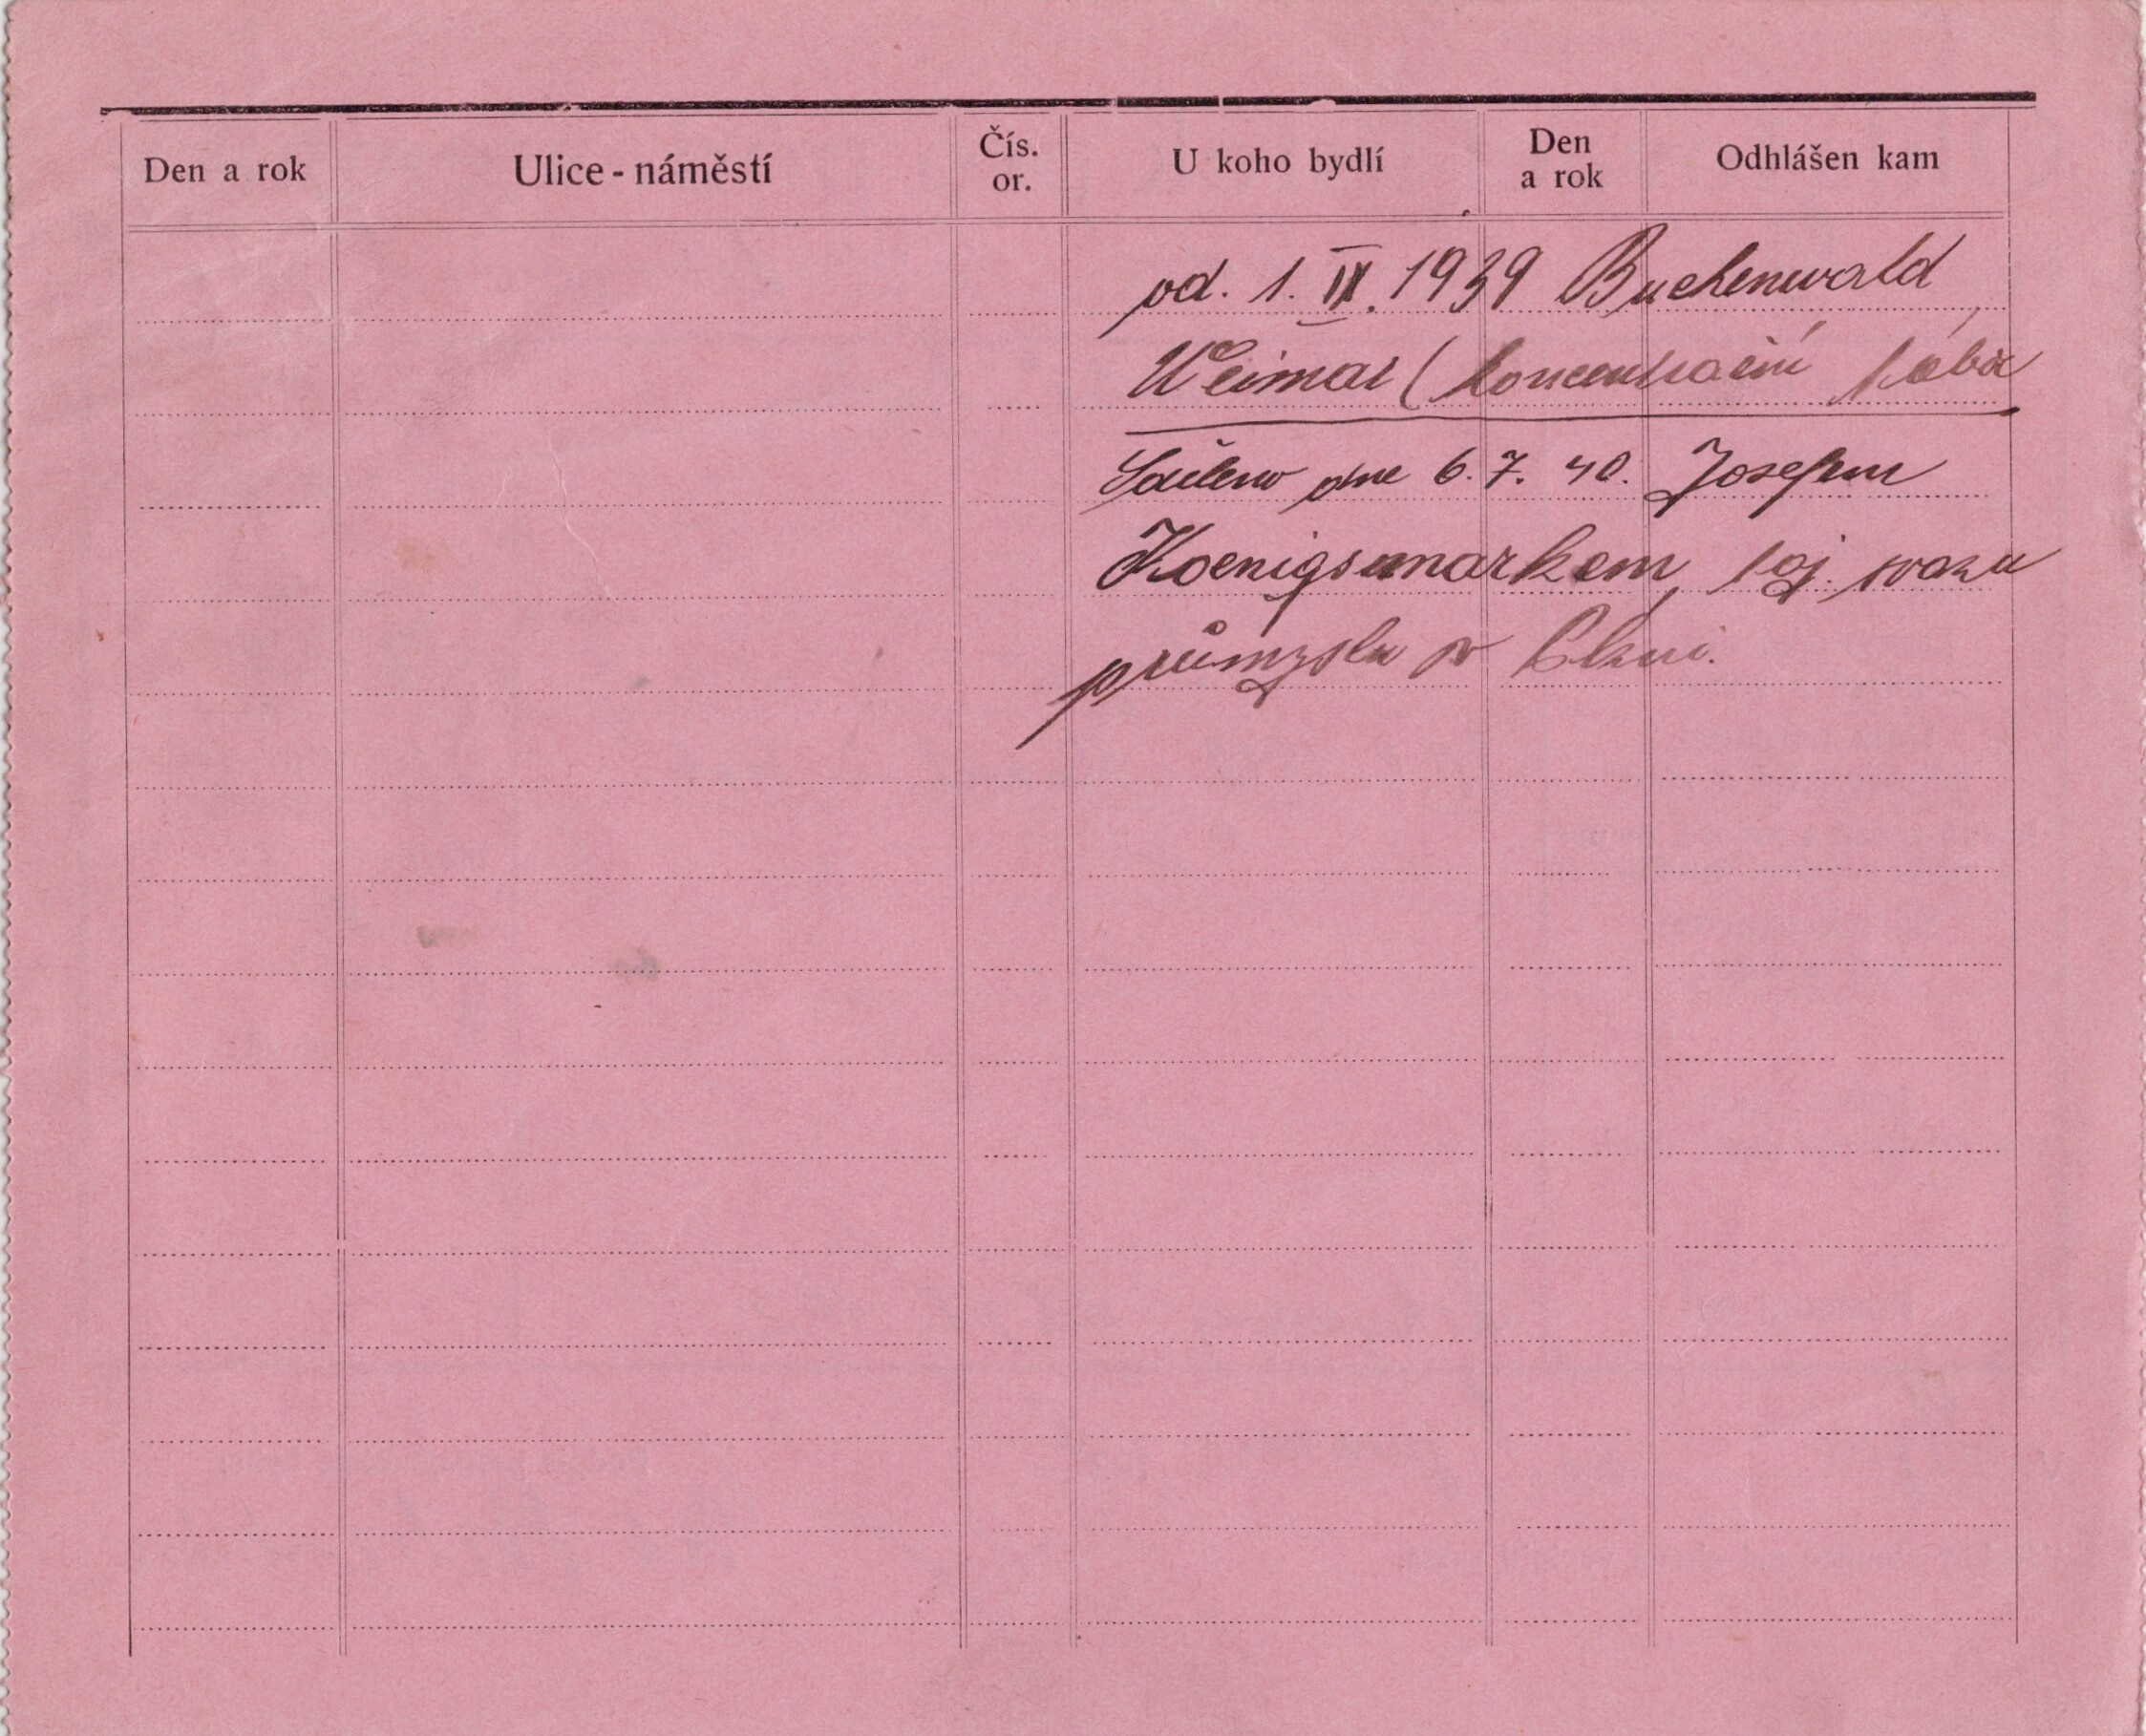 Den a rok Ulice - náměstí Čís. or. U koho bydlí Den a rok Odhlášen kam
od. 1. IX. 1939 Buchenwald,
Weimar (koncentrační tábor
Sděleno dne 6. 7. 40. Josefem
Koenigsmarkem, taj. svazu
průmyslu v Plzni.